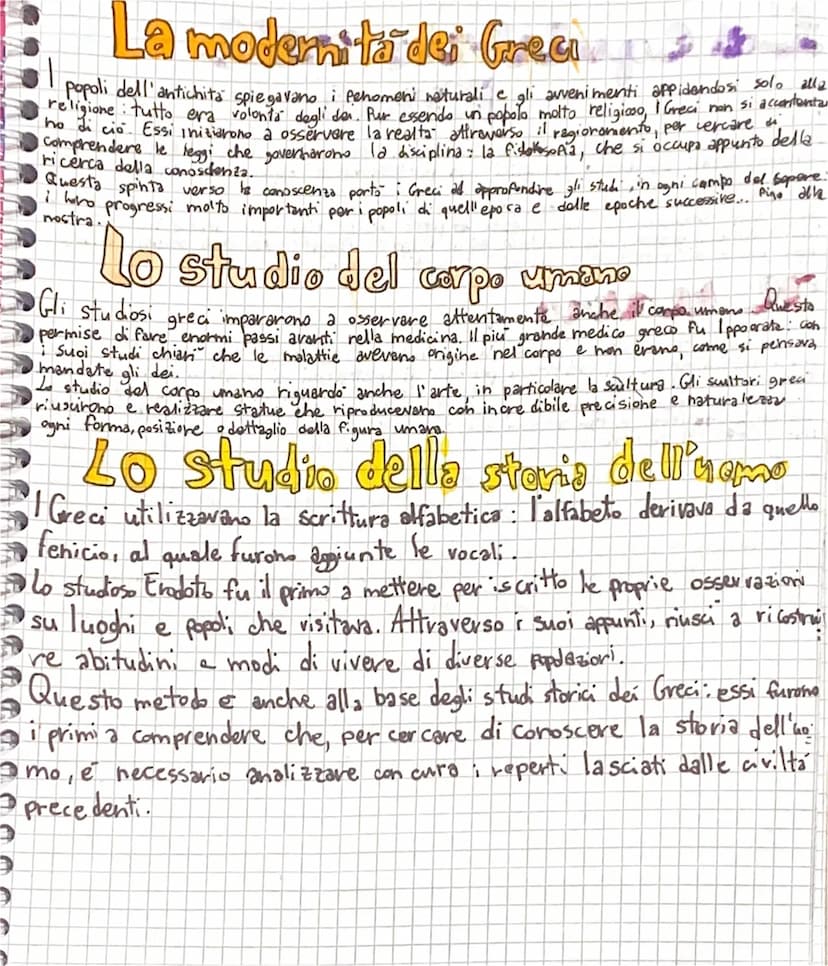 La modernità dei Greci
I popoli dell'antichità spiegavano i fenomeni naturali e gli avvenimenti affidandosi solo alla
religione: tutto era volontà degli dei. Pur essendo un popolo molto religioso, i Greci non si accontenta
no di ciò. Essi iniziarono a osservare la realtà attraverso il ragionamento, per cercare di
comprendere le leggi che governarono la disciplina: la filosofia, che si occupa appunto della
ricerca della conoscenza.
Questa spinta verso la conoscenza portò i Greci ad approfondire gli studi in ogni campo del sapere:
i loro progressi molto importanti per i popoli di quell'epoca e dalle epoche successive... fino alla
nostra.
Lo studio del corpo umano
Gli studiosi greci impararono a osservare attentamente anche il corpo umano. Questo
permise di fare enormi passi avanti nella medicina. Il più grande medico greco fu Ippocrate: con
i suoi studi chiarì che le malattie avevano origine nel corpo e non erano, come si pensava,
mandate gli dei.
Lo studio del corpo umano riguardò anche l'arte, in particolare la scultura. Gli scultori greci
riuscirono e realizzare statue che riproducevano con incredibile precisione e naturalezza
ogni forma, posizione o dettaglio della figura umana.
Lo studio della storia dell'uomo
I Greci utilizzavano la scrittura alfabetica: l'alfabeto derivava da quello
fenicio, al quale furono aggiunte le vocali.
Lo studioso Erodoto fu il primo a mettere per iscritto le proprie osservazioni
su luoghi e popoli, che visitava. Attraverso i suoi appunti, riuscì a ricostrui
re abitudini e modi di vivere di diverse popolazioni.
Questo metodo è anche alla base degli studi storici dei Greci: essi furono
i primi a comprendere che, per cercare di conoscere la storia dell'uo
mo, è necessario analizzare con cura i reperti lasciati dalle civiltà
precedenti.